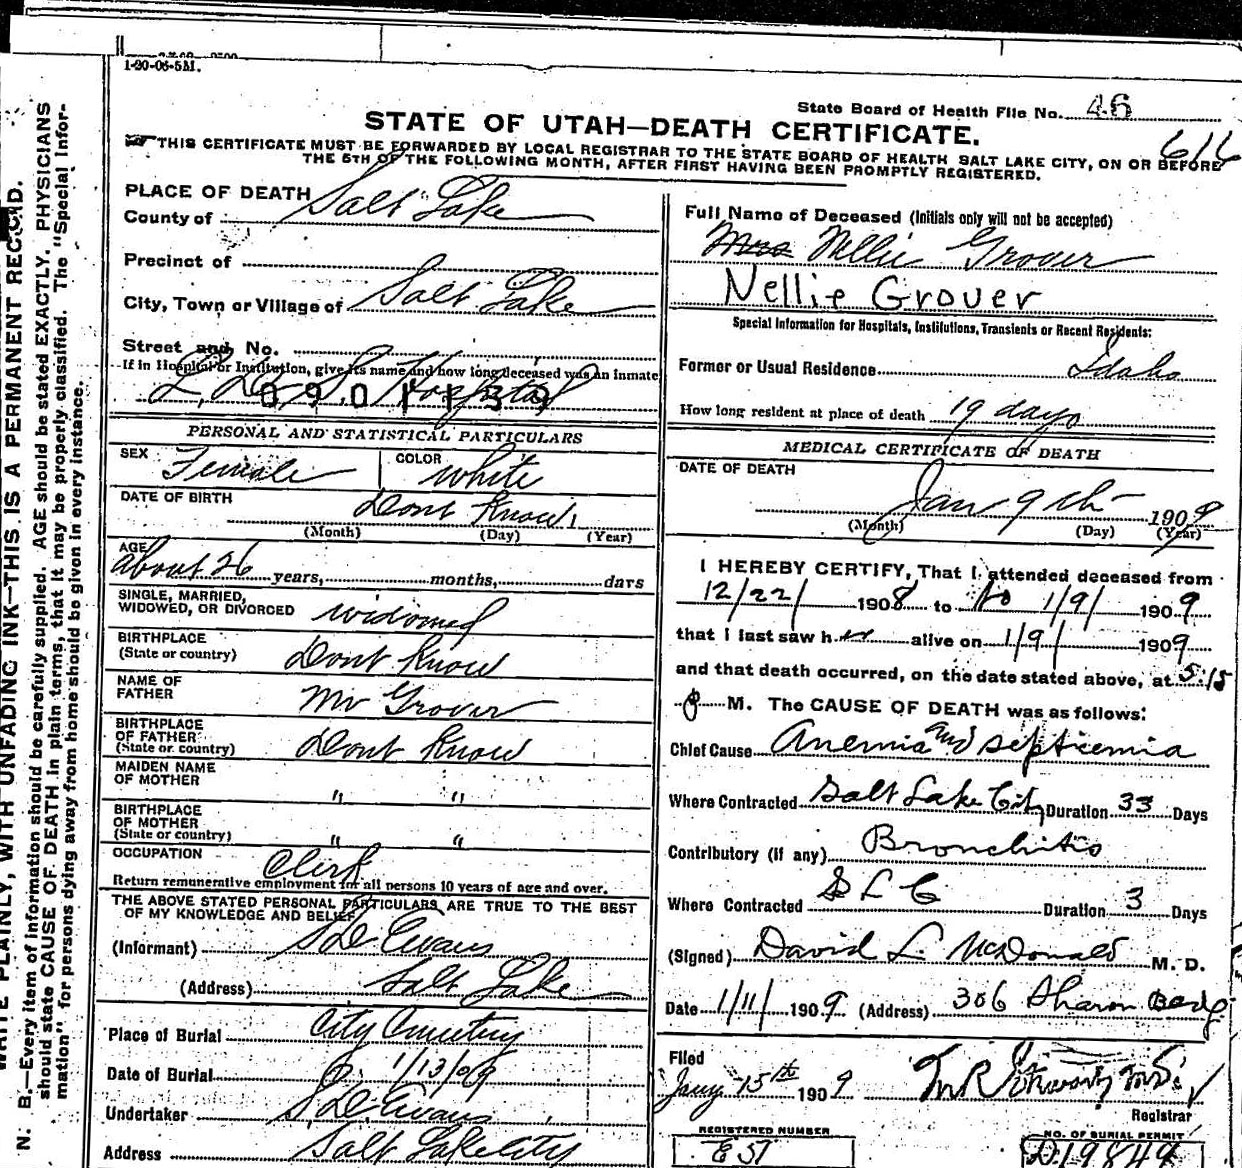 1-20-06-5M.
State Board of Health File No. 46
616
STATE OF UTAH—DEATH CERTIFICATE.
THIS CERTIFICATE MUST BE FORWARDED BY LOCAL REGISTRAR TO THE STATE BOARD OF HEALTH SALT LAKE CITY, ON OR BEFORE
THE 5TH OF THE FOLLOWING MONTH, AFTER FIRST HAVING BEEN PROMPTLY REGISTERED.
PLACE OF DEATH
County of Salt Lake
Precinct of
City, Town or Village of Salt Lake
Street and No.
If in Hospital or Institution, give its name and how long deceased was an inmate
L.D.S. Hospital
0901139
PERSONAL AND STATISTICAL PARTICULARS
SEX Female COLOR White
DATE OF BIRTH Dont Know
(Month) (Day) (Year)
AGE about 26 years, months, days
SINGLE, MARRIED,
WIDOWED, OR DIVORCED widowed
BIRTHPLACE
(State or country) Dont Know
NAME OF
FATHER Mr Grover
BIRTHPLACE
OF FATHER
(State or country) Dont Know
MAIDEN NAME
OF MOTHER " "
BIRTHPLACE
OF MOTHER
(State or country) " "
OCCUPATION Clerk
Return remunerative employment for all persons 10 years of age and over.
THE ABOVE STATED PERSONAL PARTICULARS ARE TRUE TO THE BEST
OF MY KNOWLEDGE AND BELIEF
(Informant) S D Evans
(Address) Salt Lake
Place of Burial City Cemetery
Date of Burial 1/13/09
Undertaker S D Evans
Address Salt Lake City
Full Name of Deceased (Initials only will not be accepted)
Mrs Nellie Grover
Nellie Grover
Special Information for Hospitals, Institutions, Transients or Recent Residents:
Former or Usual Residence Idaho
How long resident at place of death 19 days
MEDICAL CERTIFICATE OF DEATH
DATE OF DEATH
Jan 9th 1909
(Month) (Day) (Year)
I HEREBY CERTIFY, That I attended deceased from
12/22/ 1908 to 1/9/ 1909
that I last saw her alive on 1/9/ 1909
and that death occurred, on the date stated above, at 5:15
P M. The CAUSE OF DEATH was as follows:
Chief Cause Anemia and septicemia
Where Contracted Salt Lake City Duration 33 Days
Contributory (if any) Bronchitis
Where Contracted S L C Duration 3 Days
(Signed) David L. McDonald M. D.
Date 1/11/ 1909 (Address) 306 Sharon Bldg
Filed
Jany 15th 1909
Registrar
REGISTERED NUMBER
E 51
NO. OF BURIAL PERMIT
D19849
N. B.—Every item of information should be carefully supplied. AGE should be stated EXACTLY. PHYSICIANS
should state CAUSE OF DEATH in plain terms, that it may be properly classified. The "Special Infor-
mation" for persons dying away from home should be given in every instance.
WRITE PLAINLY, WITH UNFADING INK—THIS IS A PERMANENT RECORD.